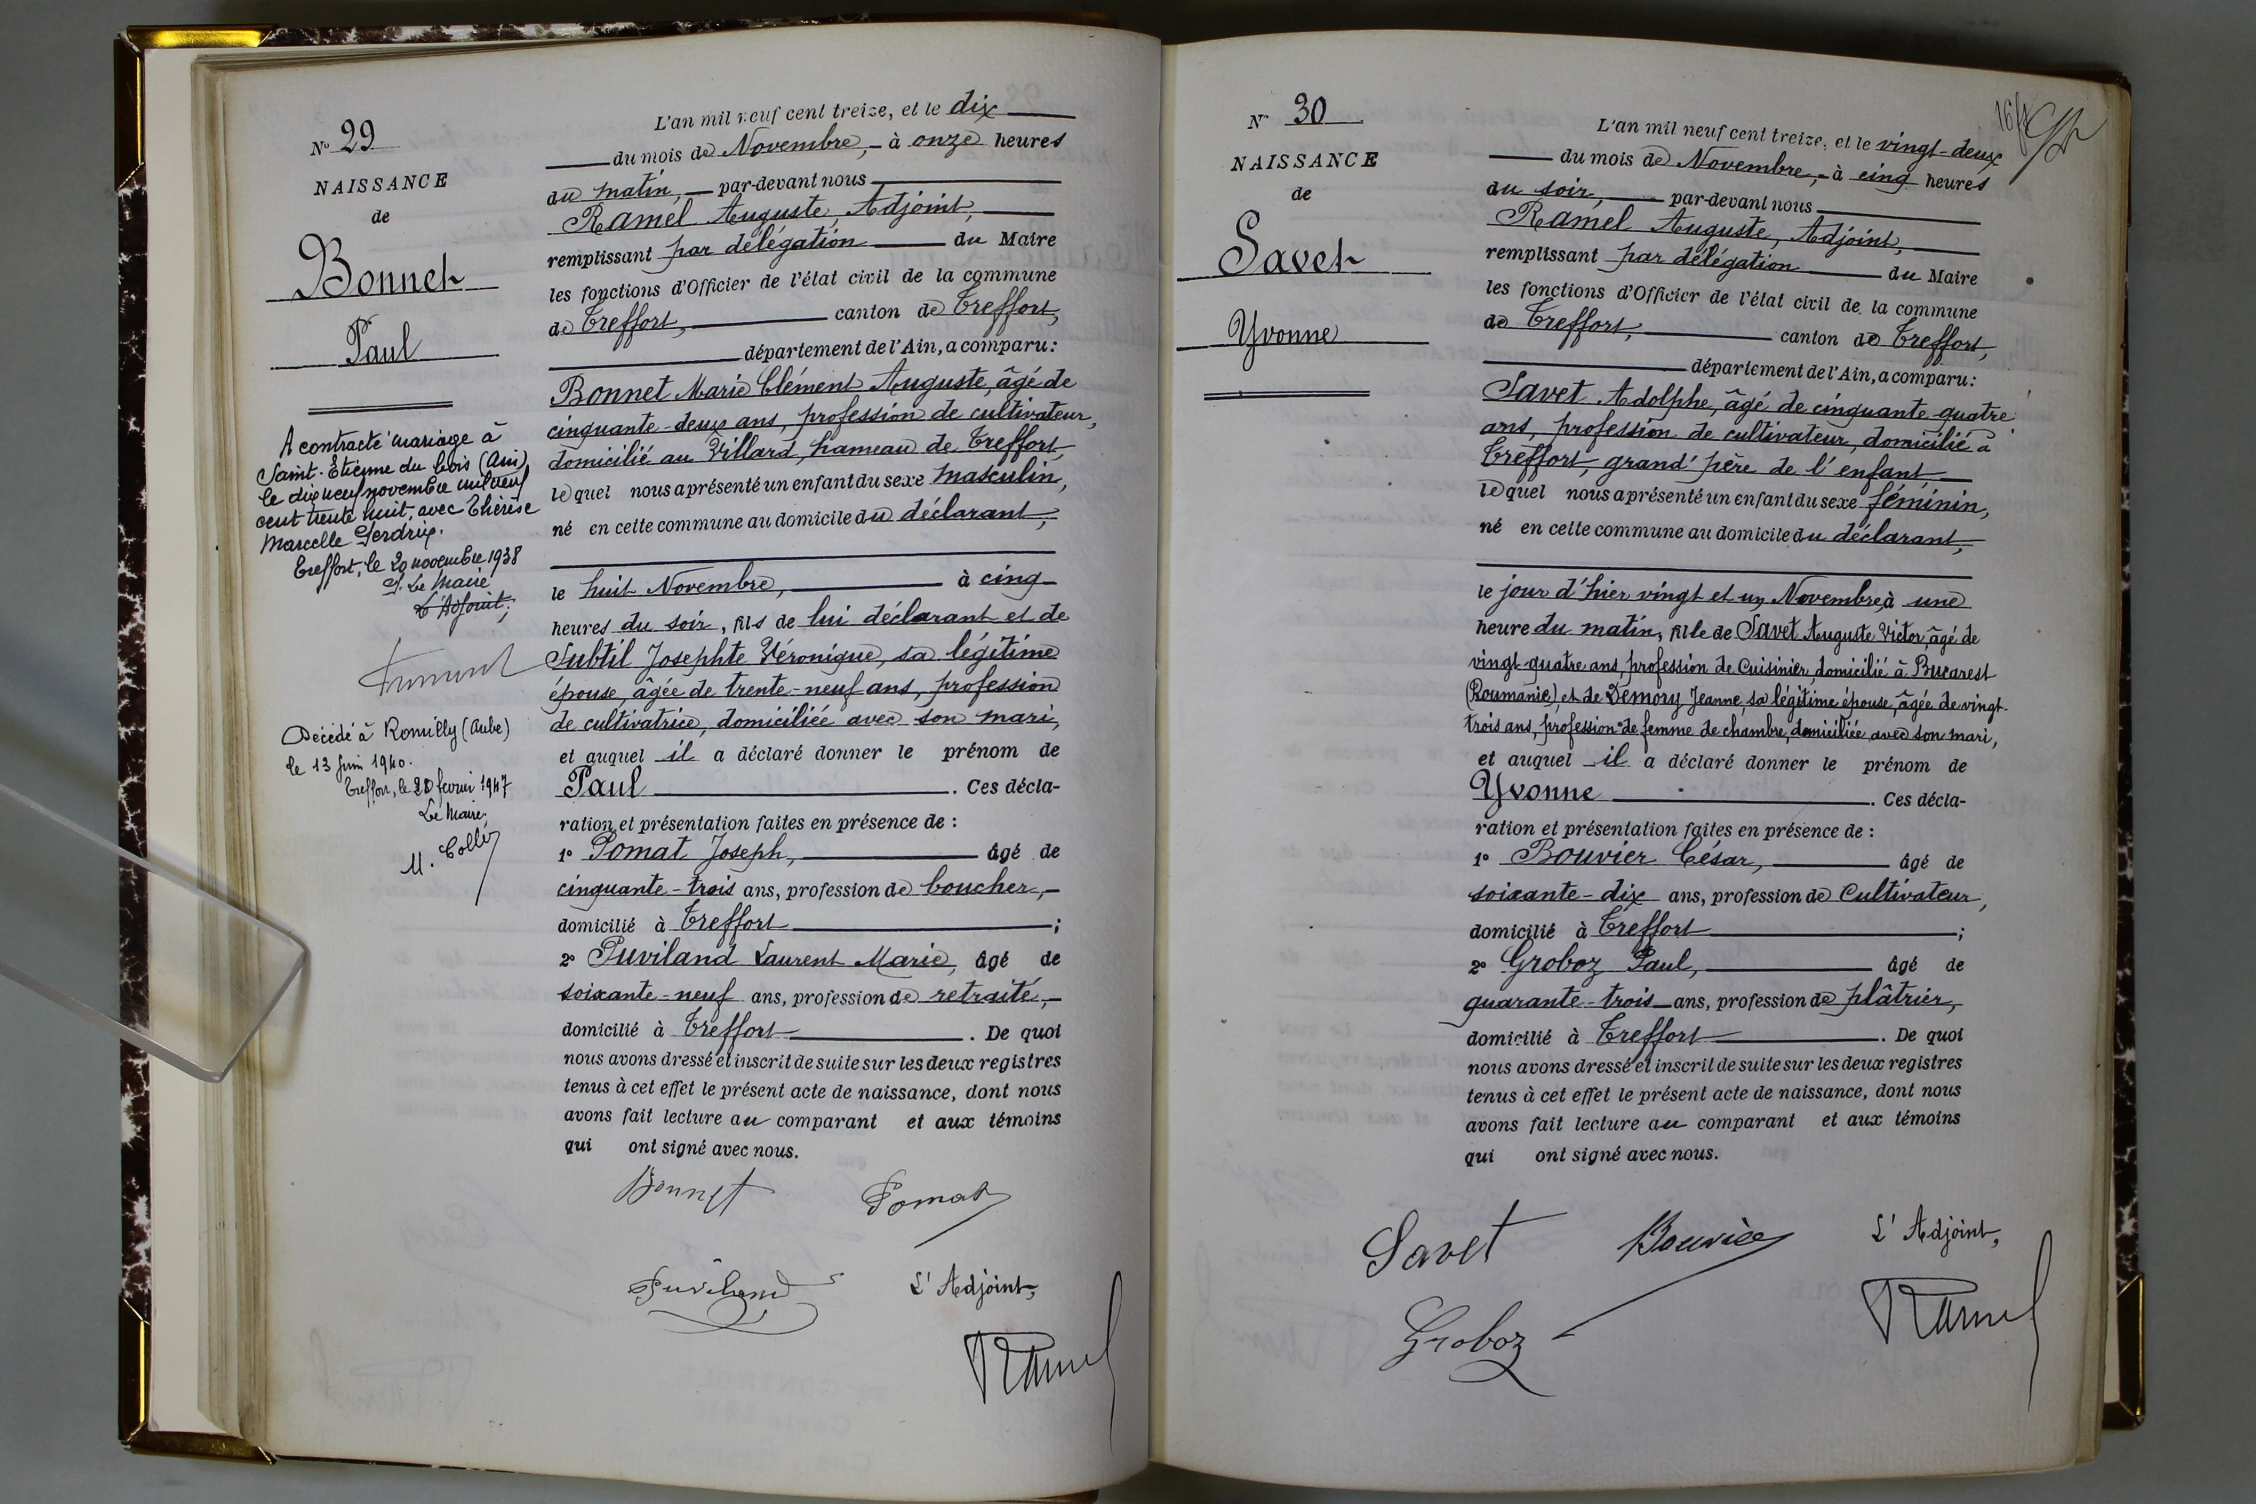 N° 29
NAISSANCE
de
Bonnet
Paul
A contracté mariage à
Saint-Etienne du bois (Ain)
le dix neuf novembre mil neuf
cent trente huit, avec Thérèse
Marcelle Perdrix.
Treffort, le 20 novembre 1938
P. Le Maire
L'Adjoint,
Décédé à Romilly (Aube)
le 13 juin 1940.
Treffort, le 20 février 1947
Le Maire,
M. Collin
L'an mil neuf cent treize, et le dix
du mois de Novembre, à onze heures
du matin, par-devant nous
Ramel Auguste, Adjoint,
remplissant par délégation du Maire
les fonctions d'Officier de l'état civil de la commune
de Treffort, canton de Treffort,
département de l'Ain, a comparu:
Bonnet Marie Clément Auguste, âgé de
cinquante-deux ans, profession de cultivateur,
domicilié au Villard, hameau de Treffort,
lequel nous a présenté un enfant du sexe masculin,
né en cette commune au domicile du déclarant,
le huit Novembre, à cinq
heures du soir, fils de lui déclarant et de
Subtil Josephte Véronique, sa légitime
épouse, âgée de trente-neuf ans, profession
de cultivatrice, domiciliée avec son mari,
et auquel il a déclaré donner le prénom de
Paul. Ces décla-
ration et présentation faites en présence de :
1° Pomat Joseph, âgé de
cinquante-trois ans, profession de boucher,
domicilié à Treffort ;
2° Puviland Laurent Marie, âgé de
soixante-neuf ans, profession de retraité,
domicilié à Treffort. De quoi
nous avons dressé et inscrit de suite sur les deux registres
tenus à cet effet le présent acte de naissance, dont nous
avons fait lecture au comparant et aux témoins
qui ont signé avec nous.
Bonnet Pomat
Puviland L'Adjoint,
Ramel
N° 30
NAISSANCE
de
Savet
Yvonne
L'an mil neuf cent treize, et le vingt-deux
du mois de Novembre, à cinq heures
du soir, par-devant nous
Ramel Auguste, Adjoint,
remplissant par délégation du Maire
les fonctions d'Officier de l'état civil de la commune
de Treffort, canton de Treffort,
département de l'Ain, a comparu:
Savet Adolphe, âgé de cinquante-quatre
ans, profession de cultivateur, domicilié à
Treffort, grand'père de l'enfant
lequel nous a présenté un enfant du sexe féminin,
né en cette commune au domicile du déclarant,
le jour d'hier vingt et un Novembre, à une
heure du matin, fille de Savet Auguste Victor, âgé de
vingt-quatre ans, profession de Cuisinier, domicilié à Bucarest
(Roumanie) et de Demory Jeanne, sa légitime épouse, âgée de vingt-
trois ans, profession de femme de chambre, domiciliée avec son mari,
et auquel il a déclaré donner le prénom de
Yvonne. Ces décla-
ration et présentation faites en présence de :
1° Bouvier César, âgé de
soixante-dix ans, profession de Cultivateur,
domicilié à Treffort ;
2° Groboz Paul, âgé de
quarante-trois ans, profession de plâtrier,
domicilié à Treffort. De quoi
nous avons dressé et inscrit de suite sur les deux registres
tenus à cet effet le présent acte de naissance, dont nous
avons fait lecture au comparant et aux témoins
qui ont signé avec nous.
Savet Bouvier L'Adjoint,
Groboz Ramel